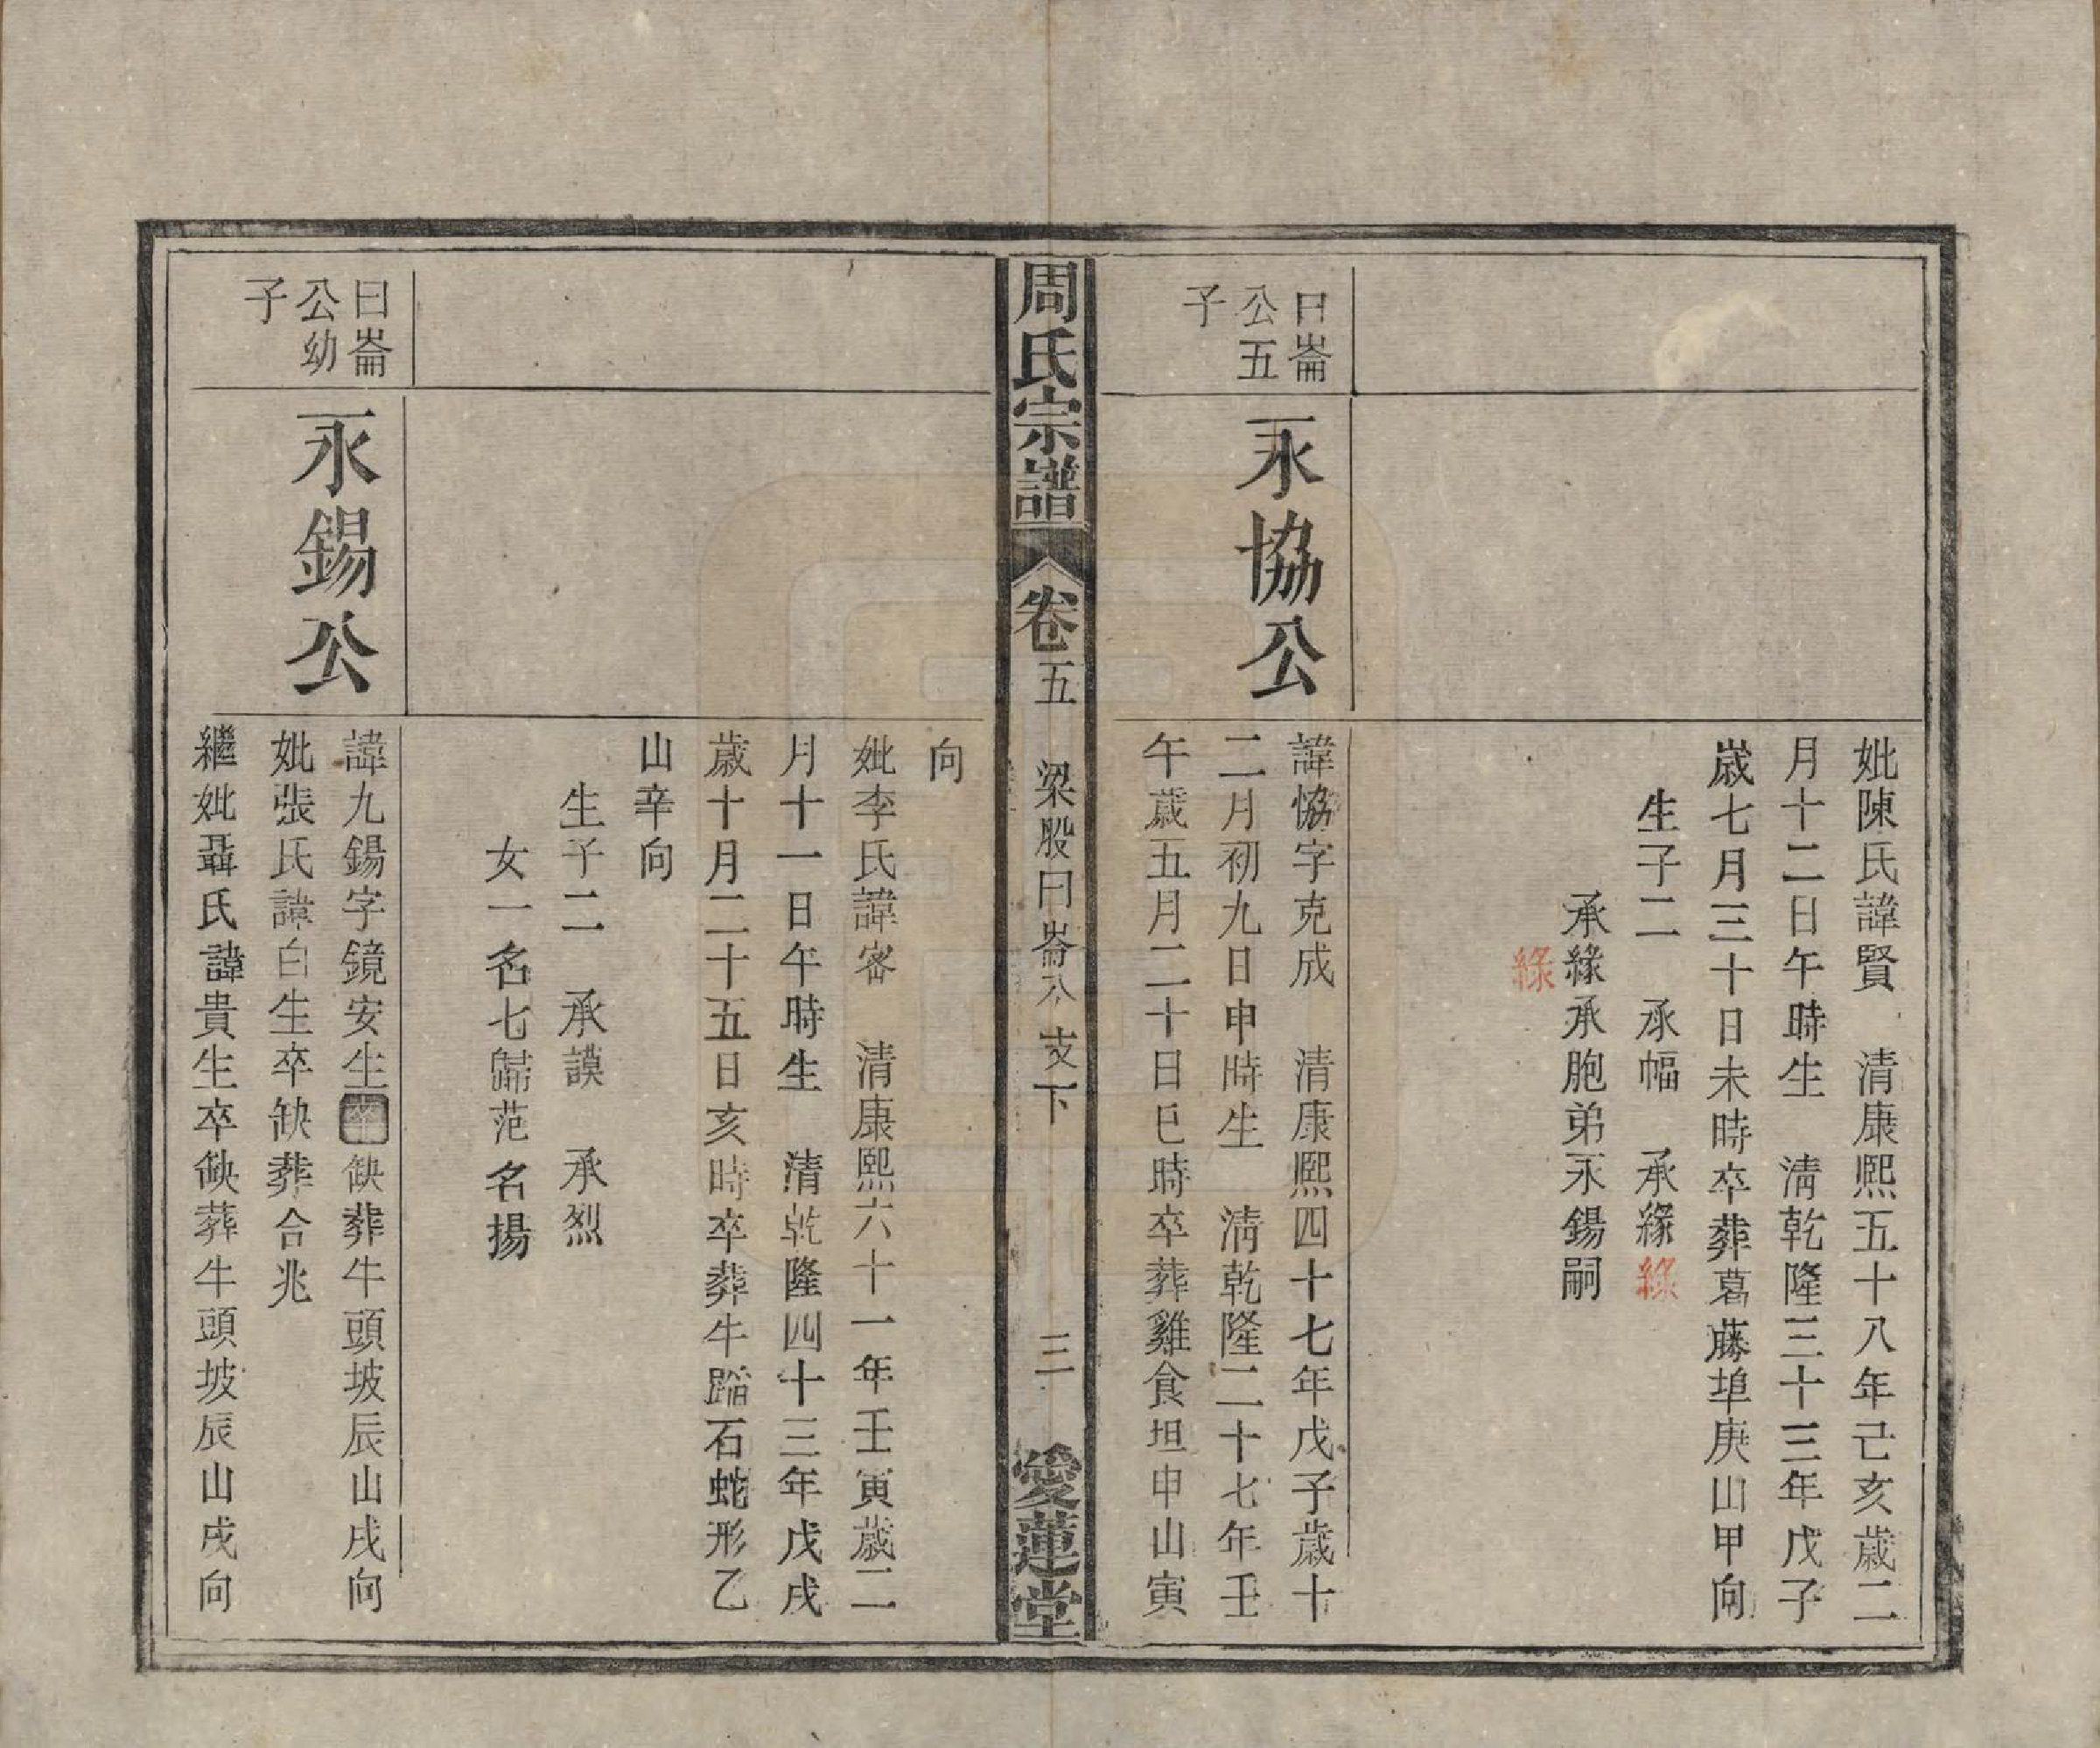 妣陳氏諱賢　清康熙五十八年己亥歲二
月十二日午時生　清乾隆三十三年戊子
歲七月三十日未時卒葬葛藤埠庚山甲向
生子二　承幅　承緣綠
承緣承胞弟永錫嗣
綠
曰崙
公五
子
永協公
諱協字克成　清康熙四十七年戊子歲十
二月初九日申時生　清乾隆二十七年壬
午歲五月二十日巳時卒葬雞食坦申山寅
周氏宗譜
卷五
梁股曰崙公支下
三
愛蓮堂
向
妣李氏諱密　清康熙六十一年壬寅歲二
月十一日午時生　清乾隆四十三年戊戌
歲十月二十五日亥時卒葬牛蹈石蛇形乙
山辛向
生子二　承謨　承烈
女一名七歸范名揚
曰崙
公幼
子
永錫公
諱九錫字鏡安生卒缺葬牛頭坡辰山戌向
妣張氏諱白生卒缺葬合兆
繼妣聶氏諱貴生卒缺葬牛頭坡辰山戌向